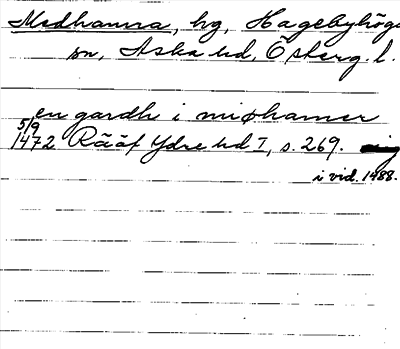 Medhamra, hg, Hagebyhöga
sn, Aska hd, Österg. l.
en gardh i miøhamer
5/9
1472 Rääf Ydre hd I, s. 269.
i vid. 1488.